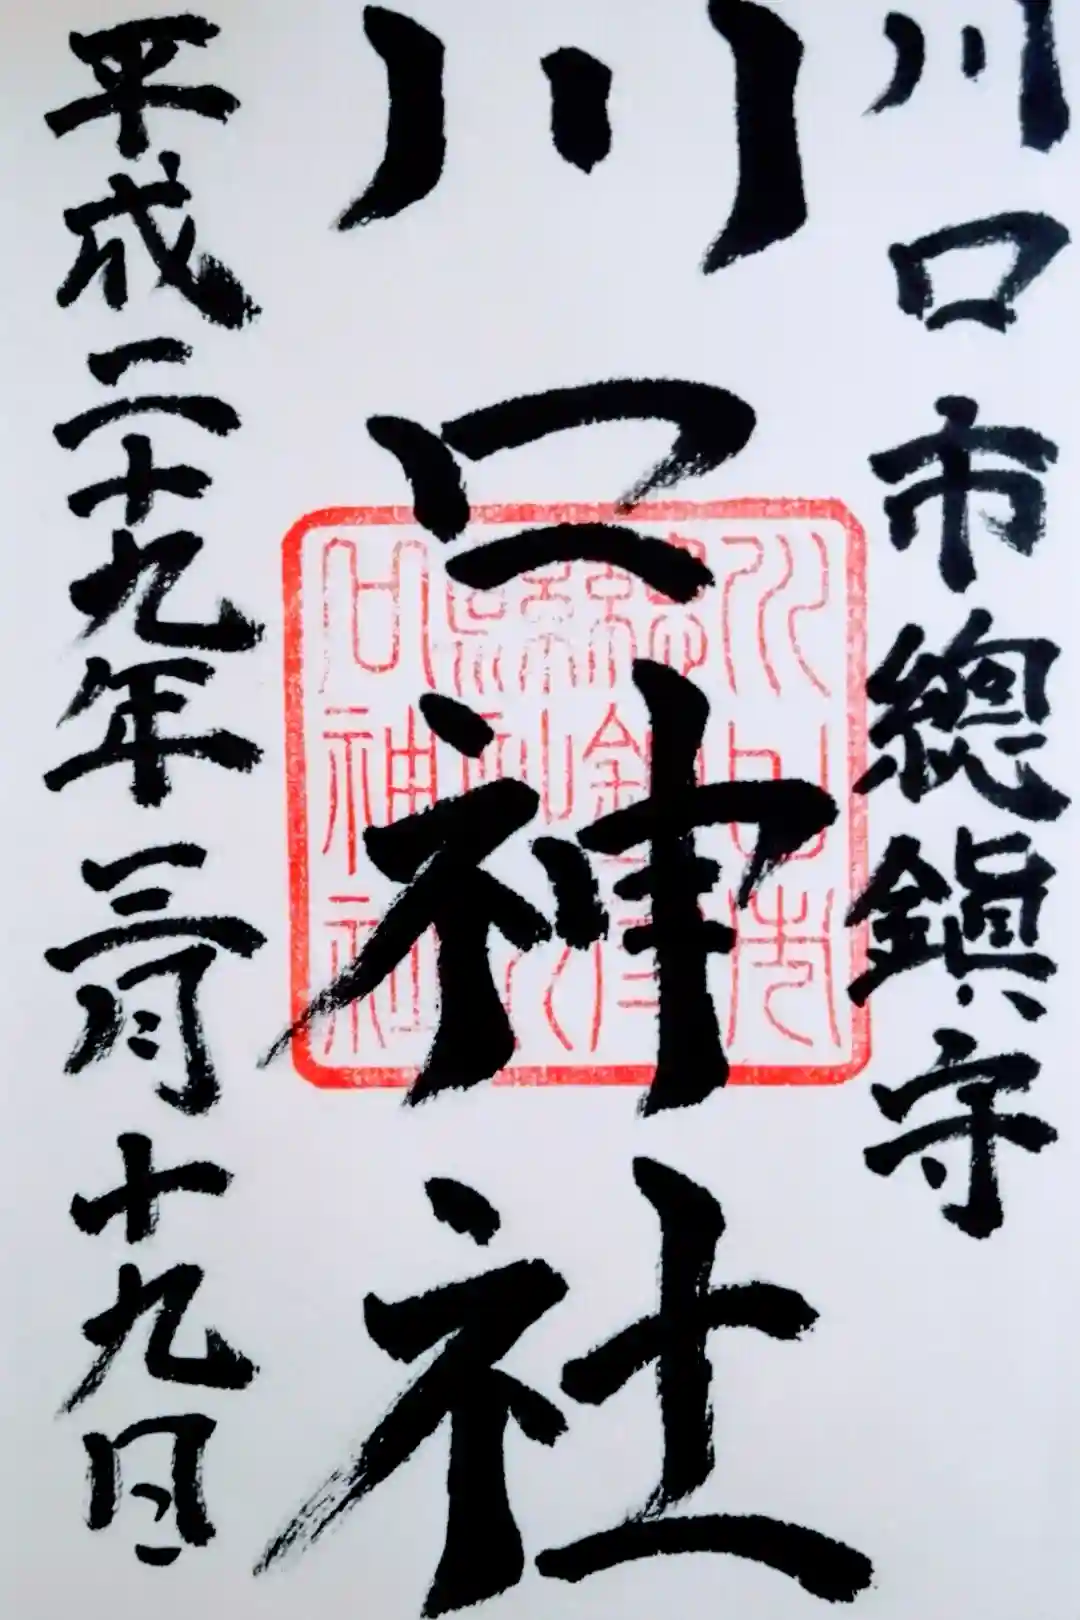 川口市總鎭守
川口神社
平成二十九年三月十九日
川口市
總鎭守
口神社